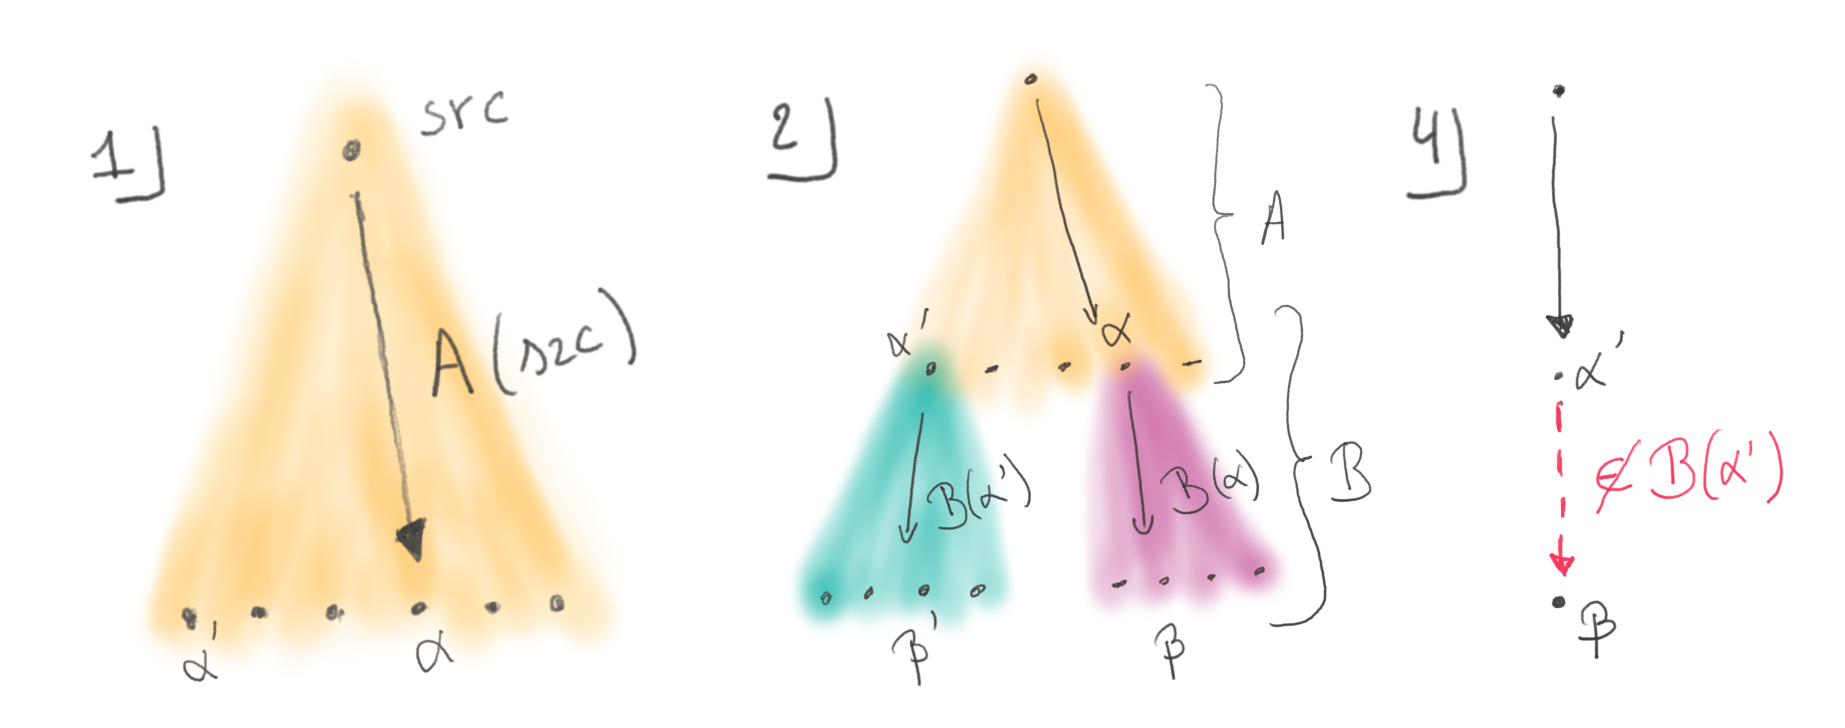 1]
src
A(src)
α'
α
2]
A
α'
α
B(α')
B(α)
B
β'
β
4]
α'
∉ B(α')
β